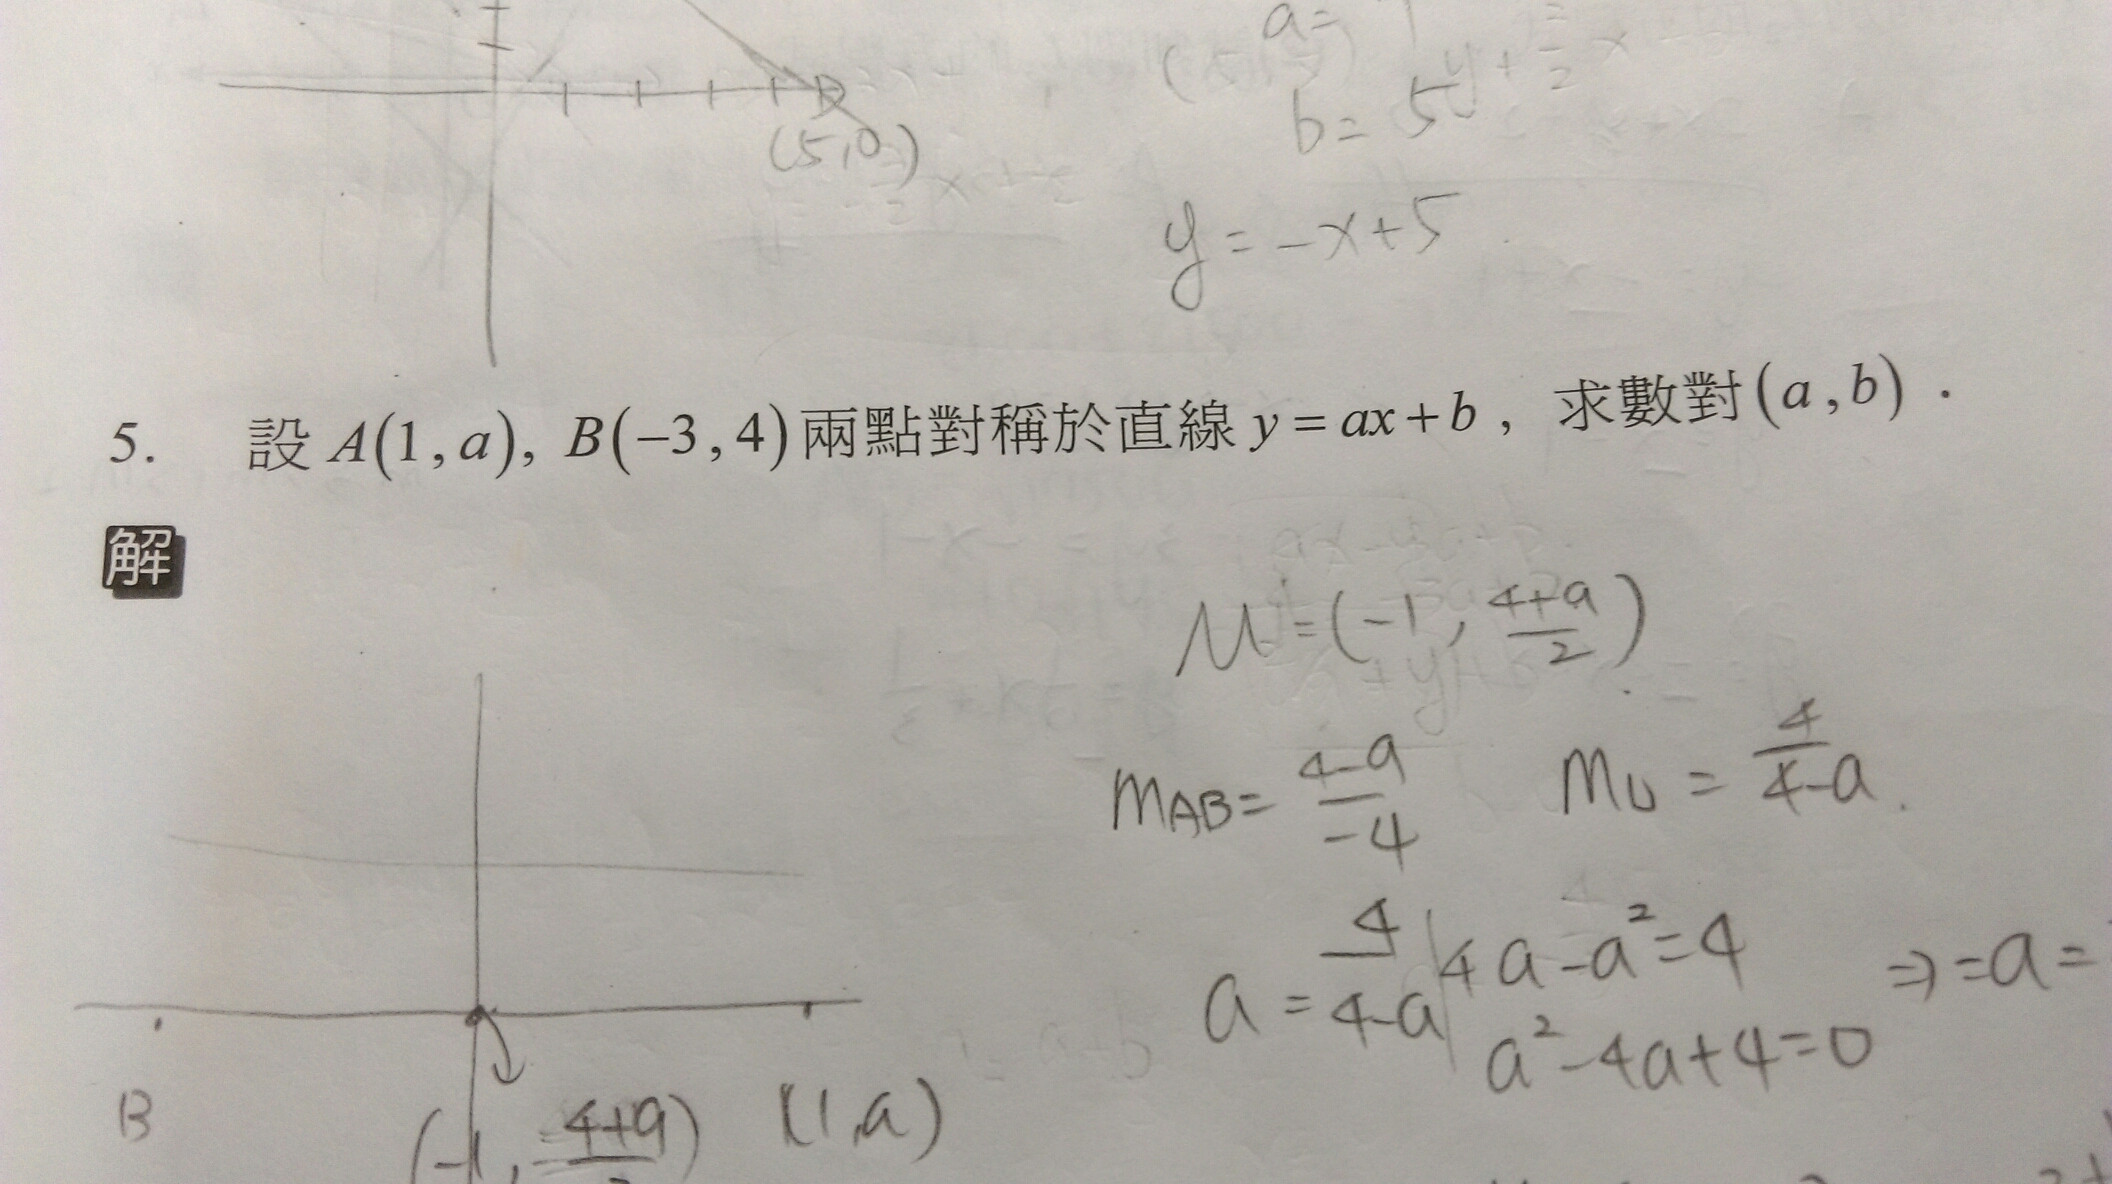 a=
b=5
(5,0)
y=-x+5
5. 設 A(1,a), B(-3,4)兩點對稱於直線 y=ax+b，求數對(a,b)．
解
M=(-1, \frac{4+a}{2})
m_{AB}=\frac{4-a}{-4} m_L=\frac{4}{4-a}
a=\frac{4}{4-a} 4a-a^2=4 ⇒=a=
a^2-4a+4=0
B (-1, \frac{4+a}{2}) (1,a)